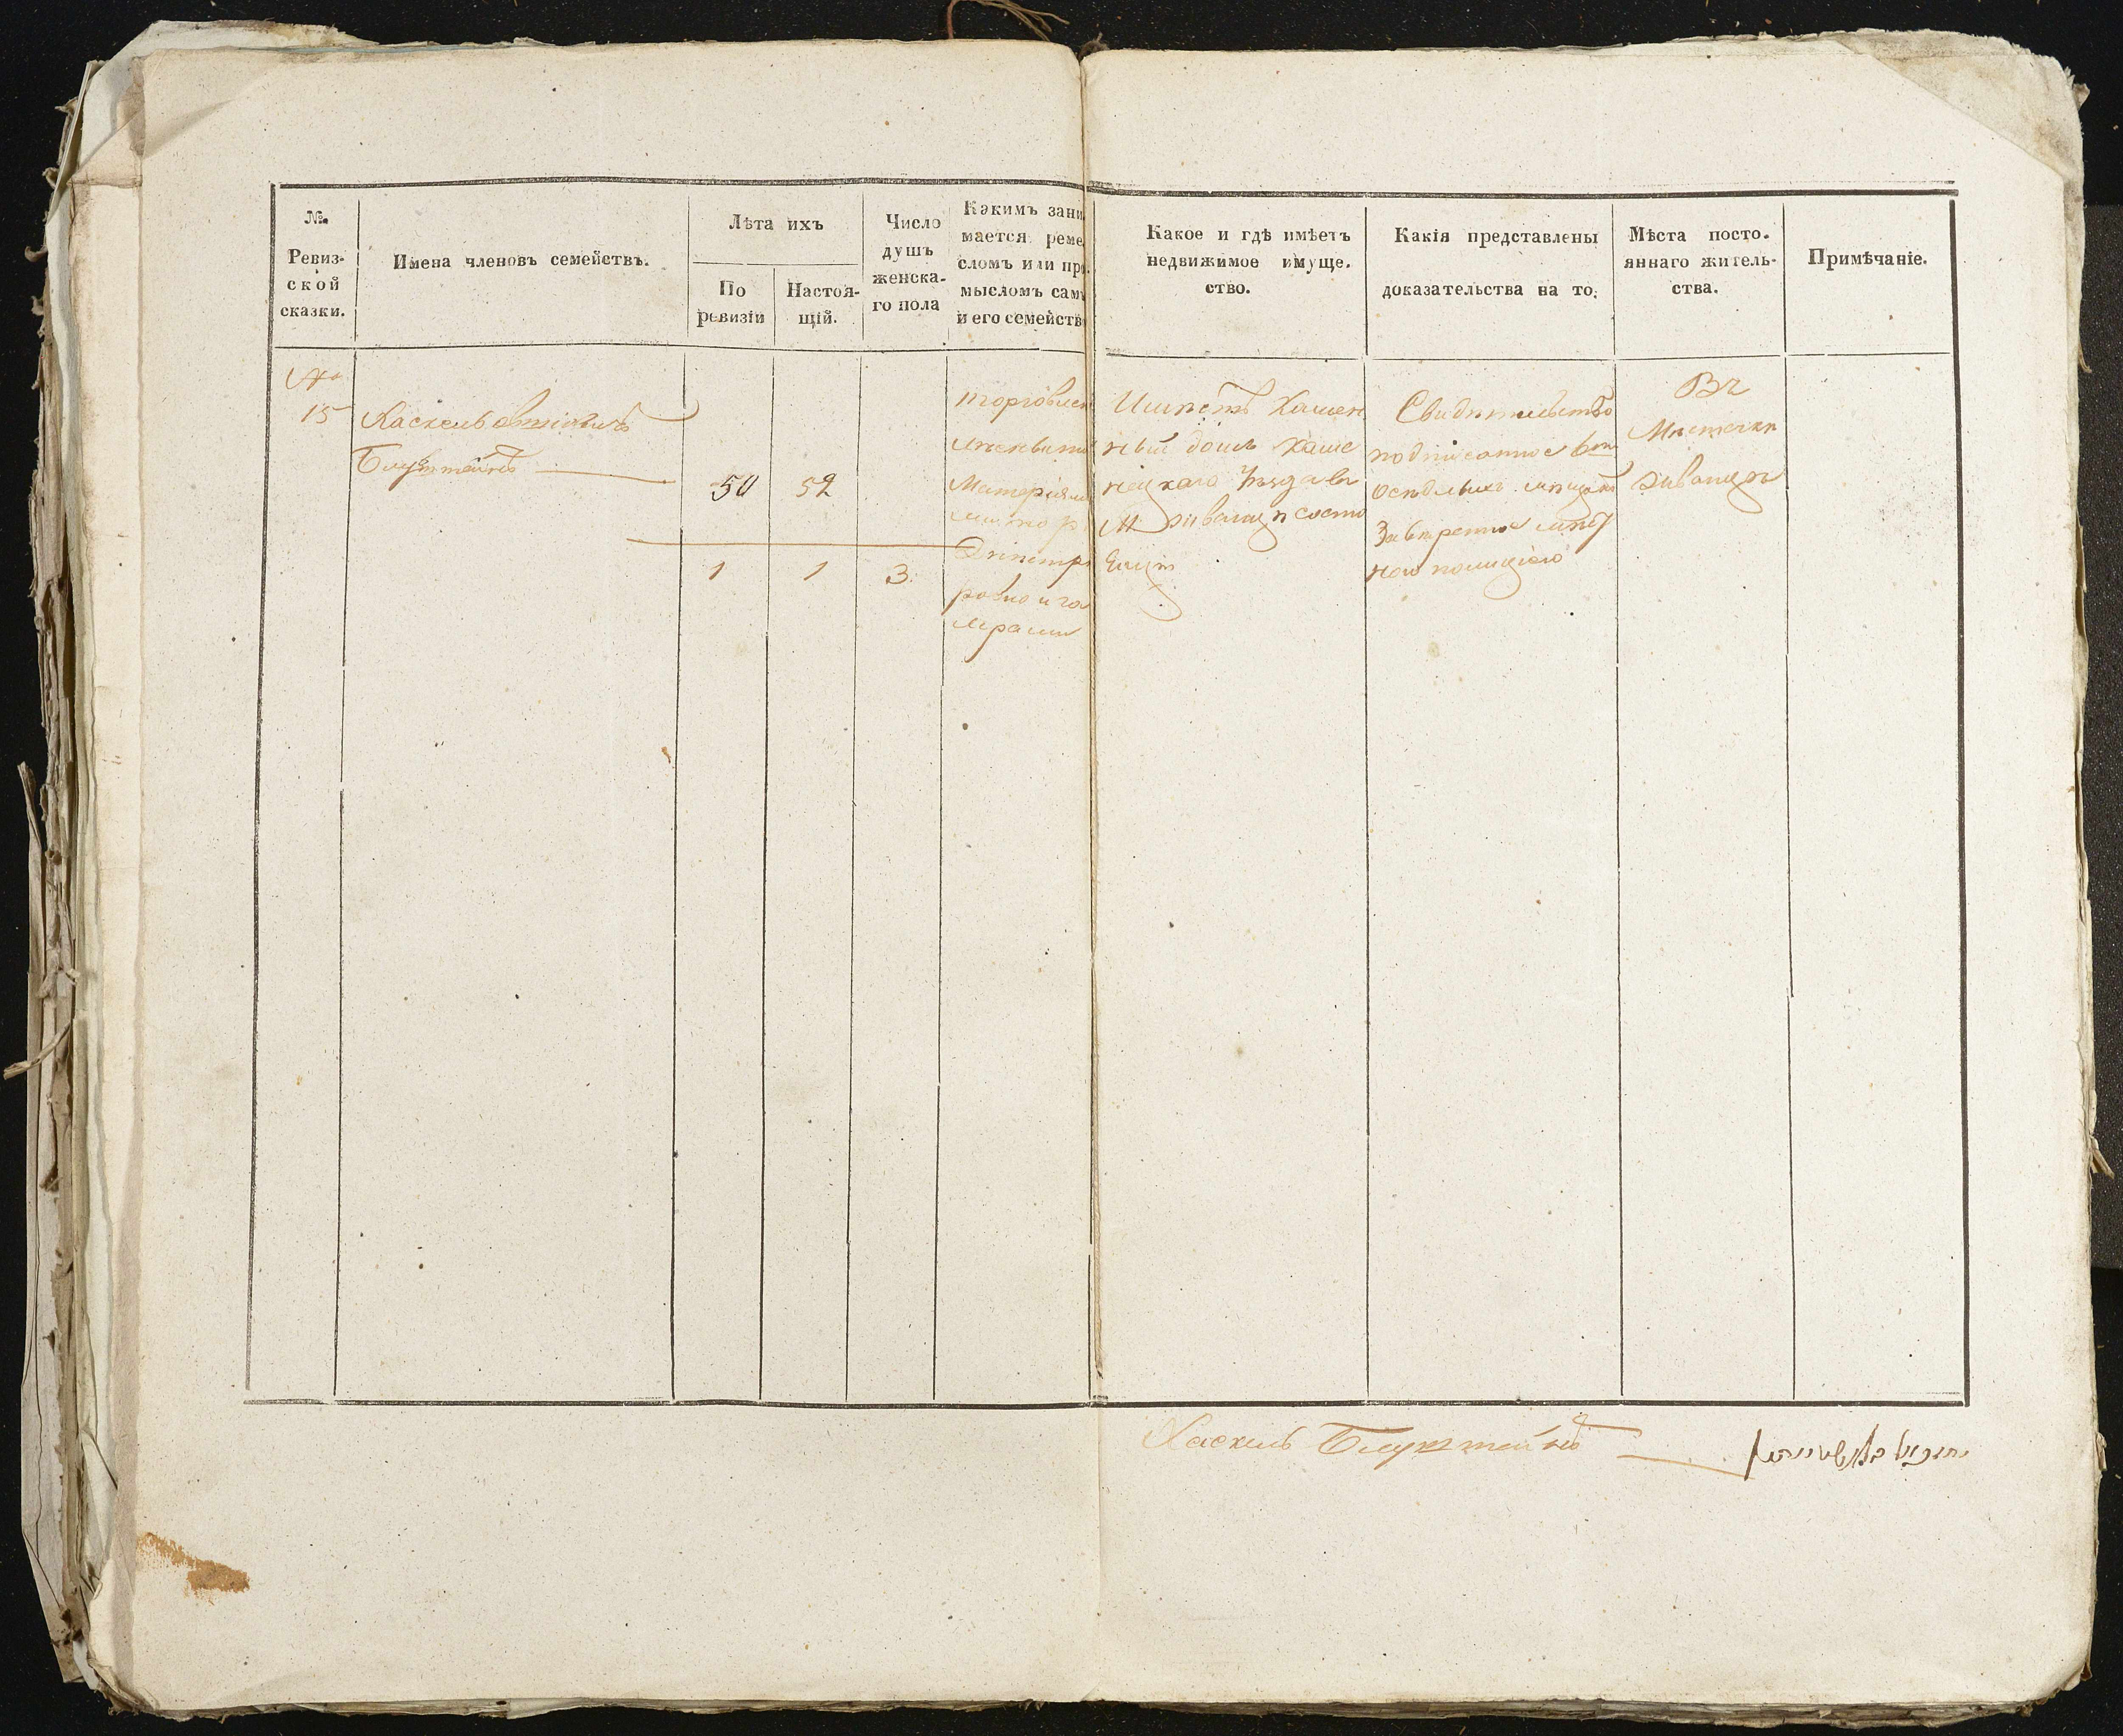 №
Ревиз-
ской
сказки.
Имена членовъ семействъ.
Лѣта ихъ
По
ревизіи
Настоя-
щій.
Число
душъ
женска-
го пола
Какимъ зани
мается реме
сломъ или про
мысломъ самъ
и его семейство
Какое и гдѣ имѣетъ
недвижимое имуще-
ство.
Какія представлены
доказательства на то.
Мѣста посто-
яннаго житель-
ства.
Примѣчаніе.
№
15
Хаскель
Блуштейнъ
50
52
1
1
3
торговлею
Матеріял
Днѣстр
равно и
Имѣетъ Камен
ный домъ Каме
нецкаго Уѣзда въ
М Жванцѣ состо
ящій
Свидѣтельство
подписанное
осѣдлыхъ мѣщанъ
Завѣренное мѣст
ною полиціею
Въ
Мѣстечкѣ
Жванцѣ
Хаскель Блуштейнъ